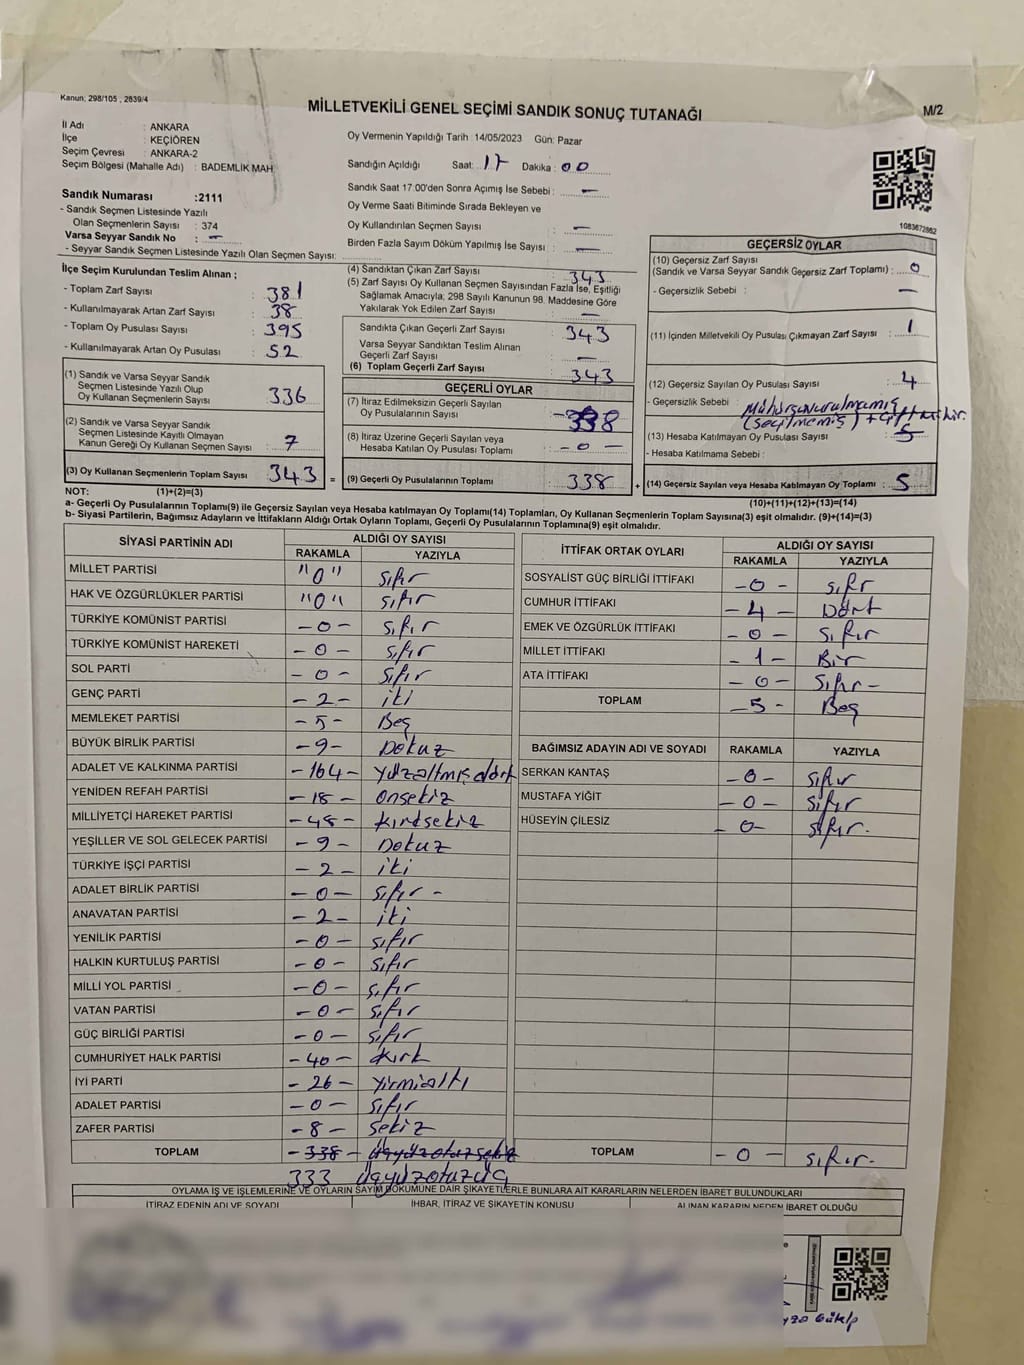 Kanun; 298/105 , 2839/4
MİLLETVEKİLİ GENEL SEÇİMİ SANDIK SONUÇ TUTANAĞI
M/2
İl Adı : ANKARA
İlçe : KEÇİÖREN
Seçim Çevresi : ANKARA-2
Seçim Bölgesi (Mahalle Adı) : BADEMLİK MAH
Sandık Numarası :2111
- Sandık Seçmen Listesinde Yazılı
Olan Seçmenlerin Sayısı : 374
Varsa Seyyar Sandık No : —
- Seyyar Sandık Seçmen Listesinde Yazılı Olan Seçmen Sayısı:
Oy Vermenin Yapıldığı Tarih :14/05/2023 Gün: Pazar
Sandığın Açıldığı Saat: 17 Dakika : 00
Sandık Saat 17:00'den Sonra Açımış İse Sebebi : —
Oy Verme Saati Bitiminde Sırada Bekleyen ve
Oy Kullandırılan Seçmen Sayısı —
Birden Fazla Sayım Döküm Yapılmış İse Sayısı : —
1083672862
İlçe Seçim Kurulundan Teslim Alınan ;
- Toplam Zarf Sayısı : 381
- Kullanılmayarak Artan Zarf Sayısı : 38
- Toplam Oy Pusulası Sayısı : 395
- Kullanılmayarak Artan Oy Pusulası : 52
(1) Sandık ve Varsa Seyyar Sandık
Seçmen Listesinde Yazılı Olup
Oy Kullanan Seçmenlerin Sayısı 336
(2) Sandık ve Varsa Seyyar Sandık
Seçmen Listesinde Kayıtlı Olmayan
Kanun Gereği Oy Kullanan Seçmen Sayısı : 7
(3) Oy Kullanan Seçmenlerin Toplam Sayısı 343
(4) Sandıktan Çıkan Zarf Sayısı 343
(5) Zarf Sayısı Oy Kullanan Seçmen Sayısından Fazla İse, Eşitliği
Sağlamak Amacıyla; 298 Sayılı Kanunun 98. Maddesine Göre
Yakılarak Yok Edilen Zarf Sayısı : —
Sandıkta Çıkan Geçerli Zarf Sayısı : 343
Varsa Seyyar Sandıktan Teslim Alınan
Geçerli Zarf Sayısı : —
(6) Toplam Geçerli Zarf Sayısı : 343
GEÇERLİ OYLAR
(7) İtiraz Edilmeksizin Geçerli Sayılan
Oy Pusulalarının Sayısı : 338
(8) İtiraz Üzerine Geçerli Sayılan veya
Hesaba Katılan Oy Pusulası Toplamı : - 0 -
= (9) Geçerli Oy Pusulalarının Toplamı : 338 +
GEÇERSİZ OYLAR
(10) Geçersiz Zarf Sayısı
(Sandık ve Varsa Seyyar Sandık Geçersiz Zarf Toplamı) : 0
- Geçersizlik Sebebi : —
(11) İçinden Milletvekili Oy Pusulası Çıkmayan Zarf Sayısı : 1
(12) Geçersiz Sayılan Oy Pusulası Sayısı : 4
- Geçersizlik Sebebi :
(13) Hesaba Katılmayan Oy Pusulası Sayısı : 5
- Hesaba Katılmama Sebebi :
(14) Geçersiz Sayılan veya Hesaba Katılmayan Oy Toplamı : 5
NOT: (1)+(2)=(3)
(10)+(11)+(12)+(13)=(14)
a- Geçerli Oy Pusulaları Toplamı(9) ile Geçersiz Sayılan veya Hesaba katılmayan Oy Toplamı(14) Toplamları, Oy Kullanan Seçmenlerin Toplam Sayısına(3) eşit olmalıdır. (9)+(14)=(3)
b- Siyasi Partilerin, Bağımsız Adayların ve İttifakların Aldığı Ortak Oyların Toplamı, Geçerli Oy Pusulalarının Toplamına(9) eşit olmalıdır.
SİYASİ PARTİNİN ADI ALDIĞI OY SAYISI
RAKAMLA YAZIYLA
MİLLET PARTİSİ "0" Sıfır
HAK VE ÖZGÜRLÜKLER PARTİSİ "0" Sıfır
TÜRKİYE KOMÜNİST PARTİSİ - 0 - Sıfır
TÜRKİYE KOMÜNİST HAREKETİ - 0 - Sıfır
SOL PARTİ - 0 - Sıfır
GENÇ PARTİ - 2 - iki
MEMLEKET PARTİSİ - 5 - Beş
BÜYÜK BİRLİK PARTİSİ - 9 - Dokuz
ADALET VE KALKINMA PARTİSİ - 164 - yüzaltmışdört
YENİDEN REFAH PARTİSİ - 18 - onsekiz
MİLLİYETÇİ HAREKET PARTİSİ - 48 - kırksekiz
YEŞİLLER VE SOL GELECEK PARTİSİ - 9 - Dokuz
TÜRKİYE İŞÇİ PARTİSİ - 2 - iki
ADALET BİRLİK PARTİSİ - 0 - Sıfır -
ANAVATAN PARTİSİ - 2 - iki
YENİLİK PARTİSİ - 0 - Sıfır
HALKIN KURTULUŞ PARTİSİ - 0 - Sıfır
MİLLİ YOL PARTİSİ - 0 - Sıfır
VATAN PARTİSİ - 0 - Sıfır
GÜÇ BİRLİĞİ PARTİSİ - 0 - Sıfır
CUMHURİYET HALK PARTİSİ - 40 - kırk
İYİ PARTİ - 26 - yirmialtı
ADALET PARTİSİ - 0 - Sıfır
ZAFER PARTİSİ - 8 - Sekiz
TOPLAM - 338 - üçyüzotuzsekiz
333 üçyüzotuzüç
İTTİFAK ORTAK OYLARI ALDIĞI OY SAYISI
RAKAMLA YAZIYLA
SOSYALİST GÜÇ BİRLİĞİ İTTİFAKI - 0 - Sıfır
CUMHUR İTTİFAKI - 4 - Dört
EMEK VE ÖZGÜRLÜK İTTİFAKI - 0 - Sıfır
MİLLET İTTİFAKI - 1 - Bir
ATA İTTİFAKI - 0 - Sıfır -
TOPLAM - 5 - Beş
BAĞIMSIZ ADAYIN ADI VE SOYADI RAKAMLA YAZIYLA
SERKAN KANTAŞ - 0 - Sıfır
MUSTAFA YİĞİT - 0 - Sıfır
HÜSEYİN ÇİLESİZ - 0 - Sıfır.
TOPLAM - 0 - Sıfır.
OYLAMA İŞ VE İŞLEMLERİNE VE OYLARIN SAYIM DÖKÜMÜNE DAİR ŞİKAYETLERLE BUNLARA AİT KARARLARIN NELERDEN İBARET BULUNDUKLARI
İTİRAZ EDENİN ADI VE SOYADI İHBAR, İTİRAZ VE ŞİKAYETİN KONUSU ALINAN KARARIN NEDEN İBARET OLDUĞU